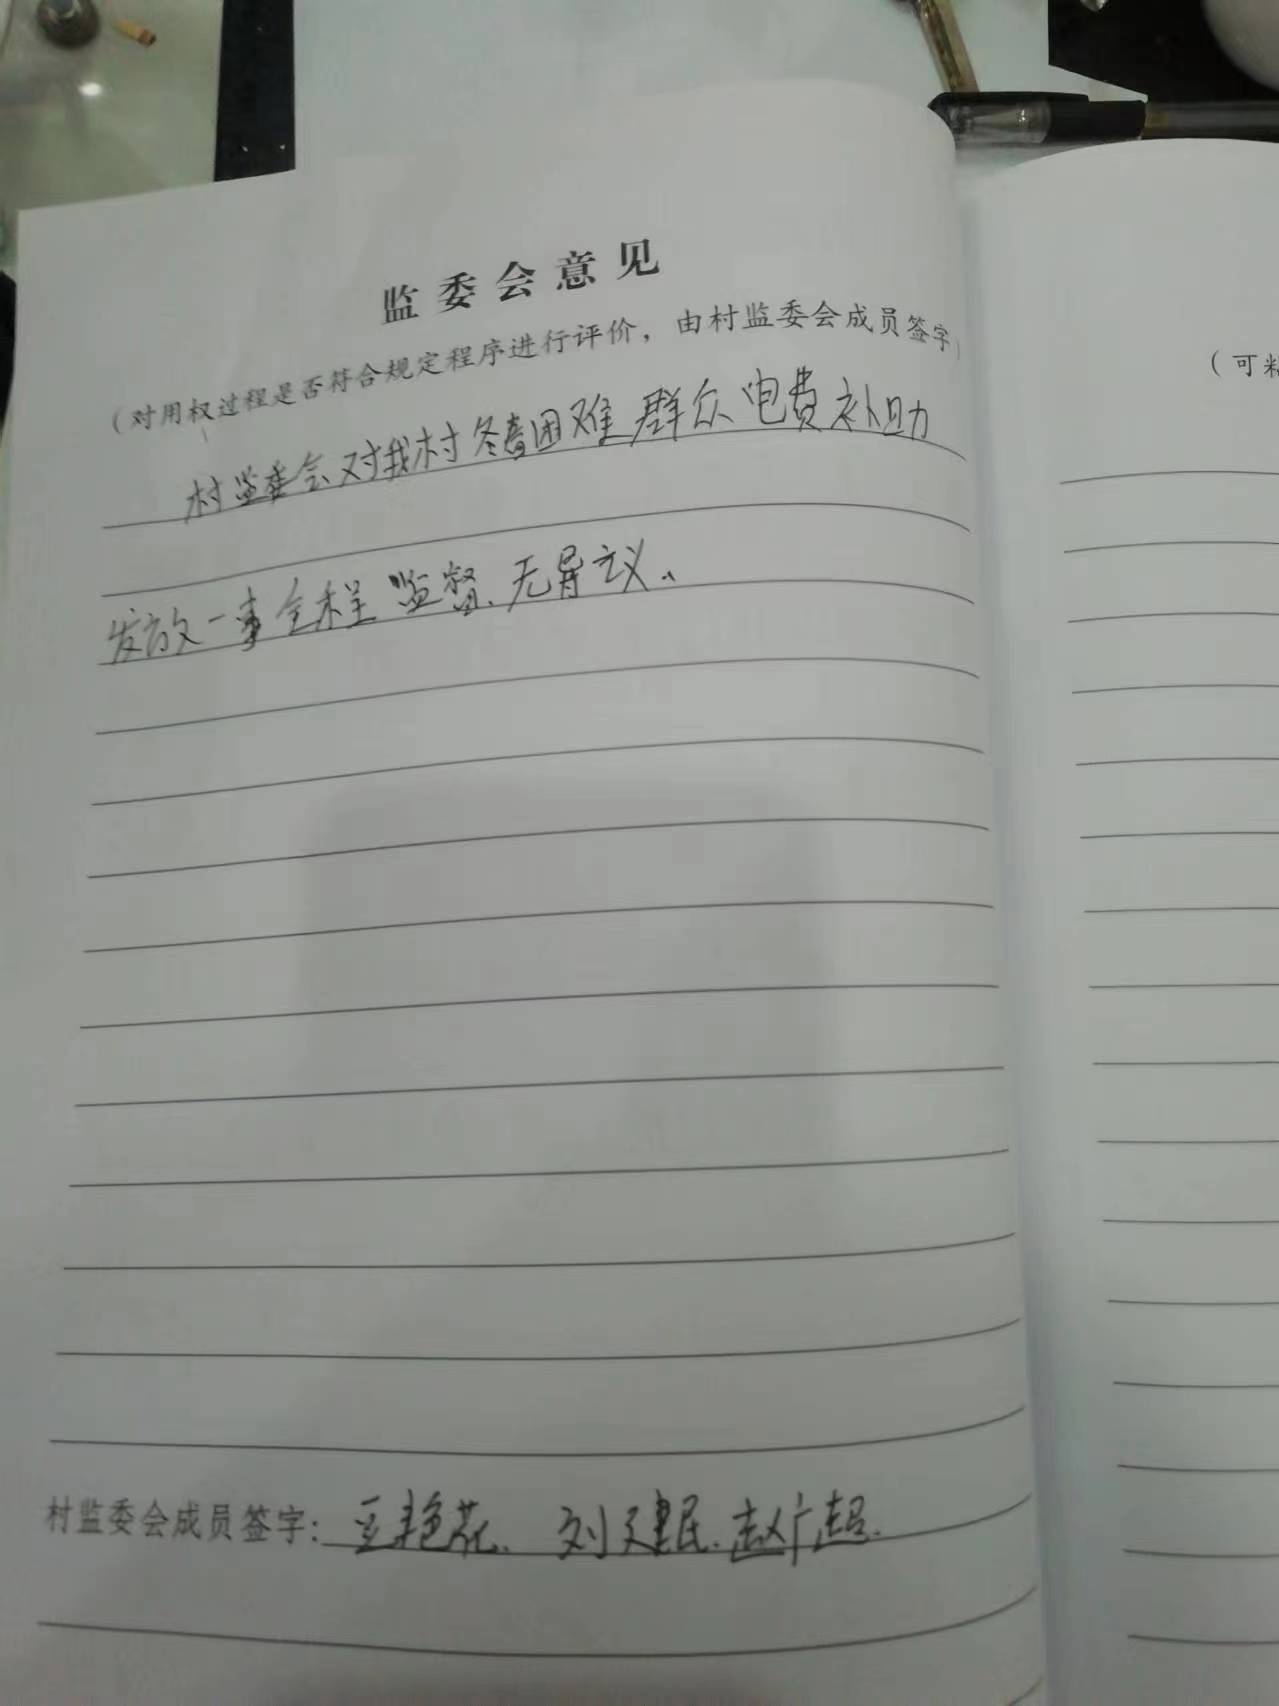 监委会意见
（对用权过程是否符合规定程序进行评价，由村监委会成员签字）
村监委会对我村冬春困难群众电费补助
发放一事全程监督、无异议。
村监委会成员签字：豆艳花、刘建民、赵广超.
（可粘